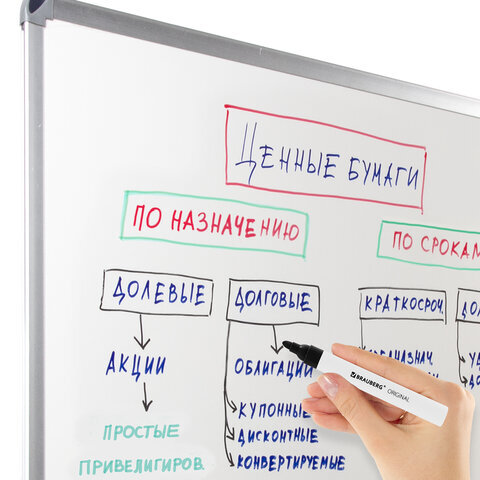 Ценные бумаги
По назначению
По срокам
Долевые
Долговые
Краткосроч.
Акции
Облигации
Простые
Привелигиров.
Купонные
Дисконтные
Конвертируемые
BRAUBERG ORIGINAL